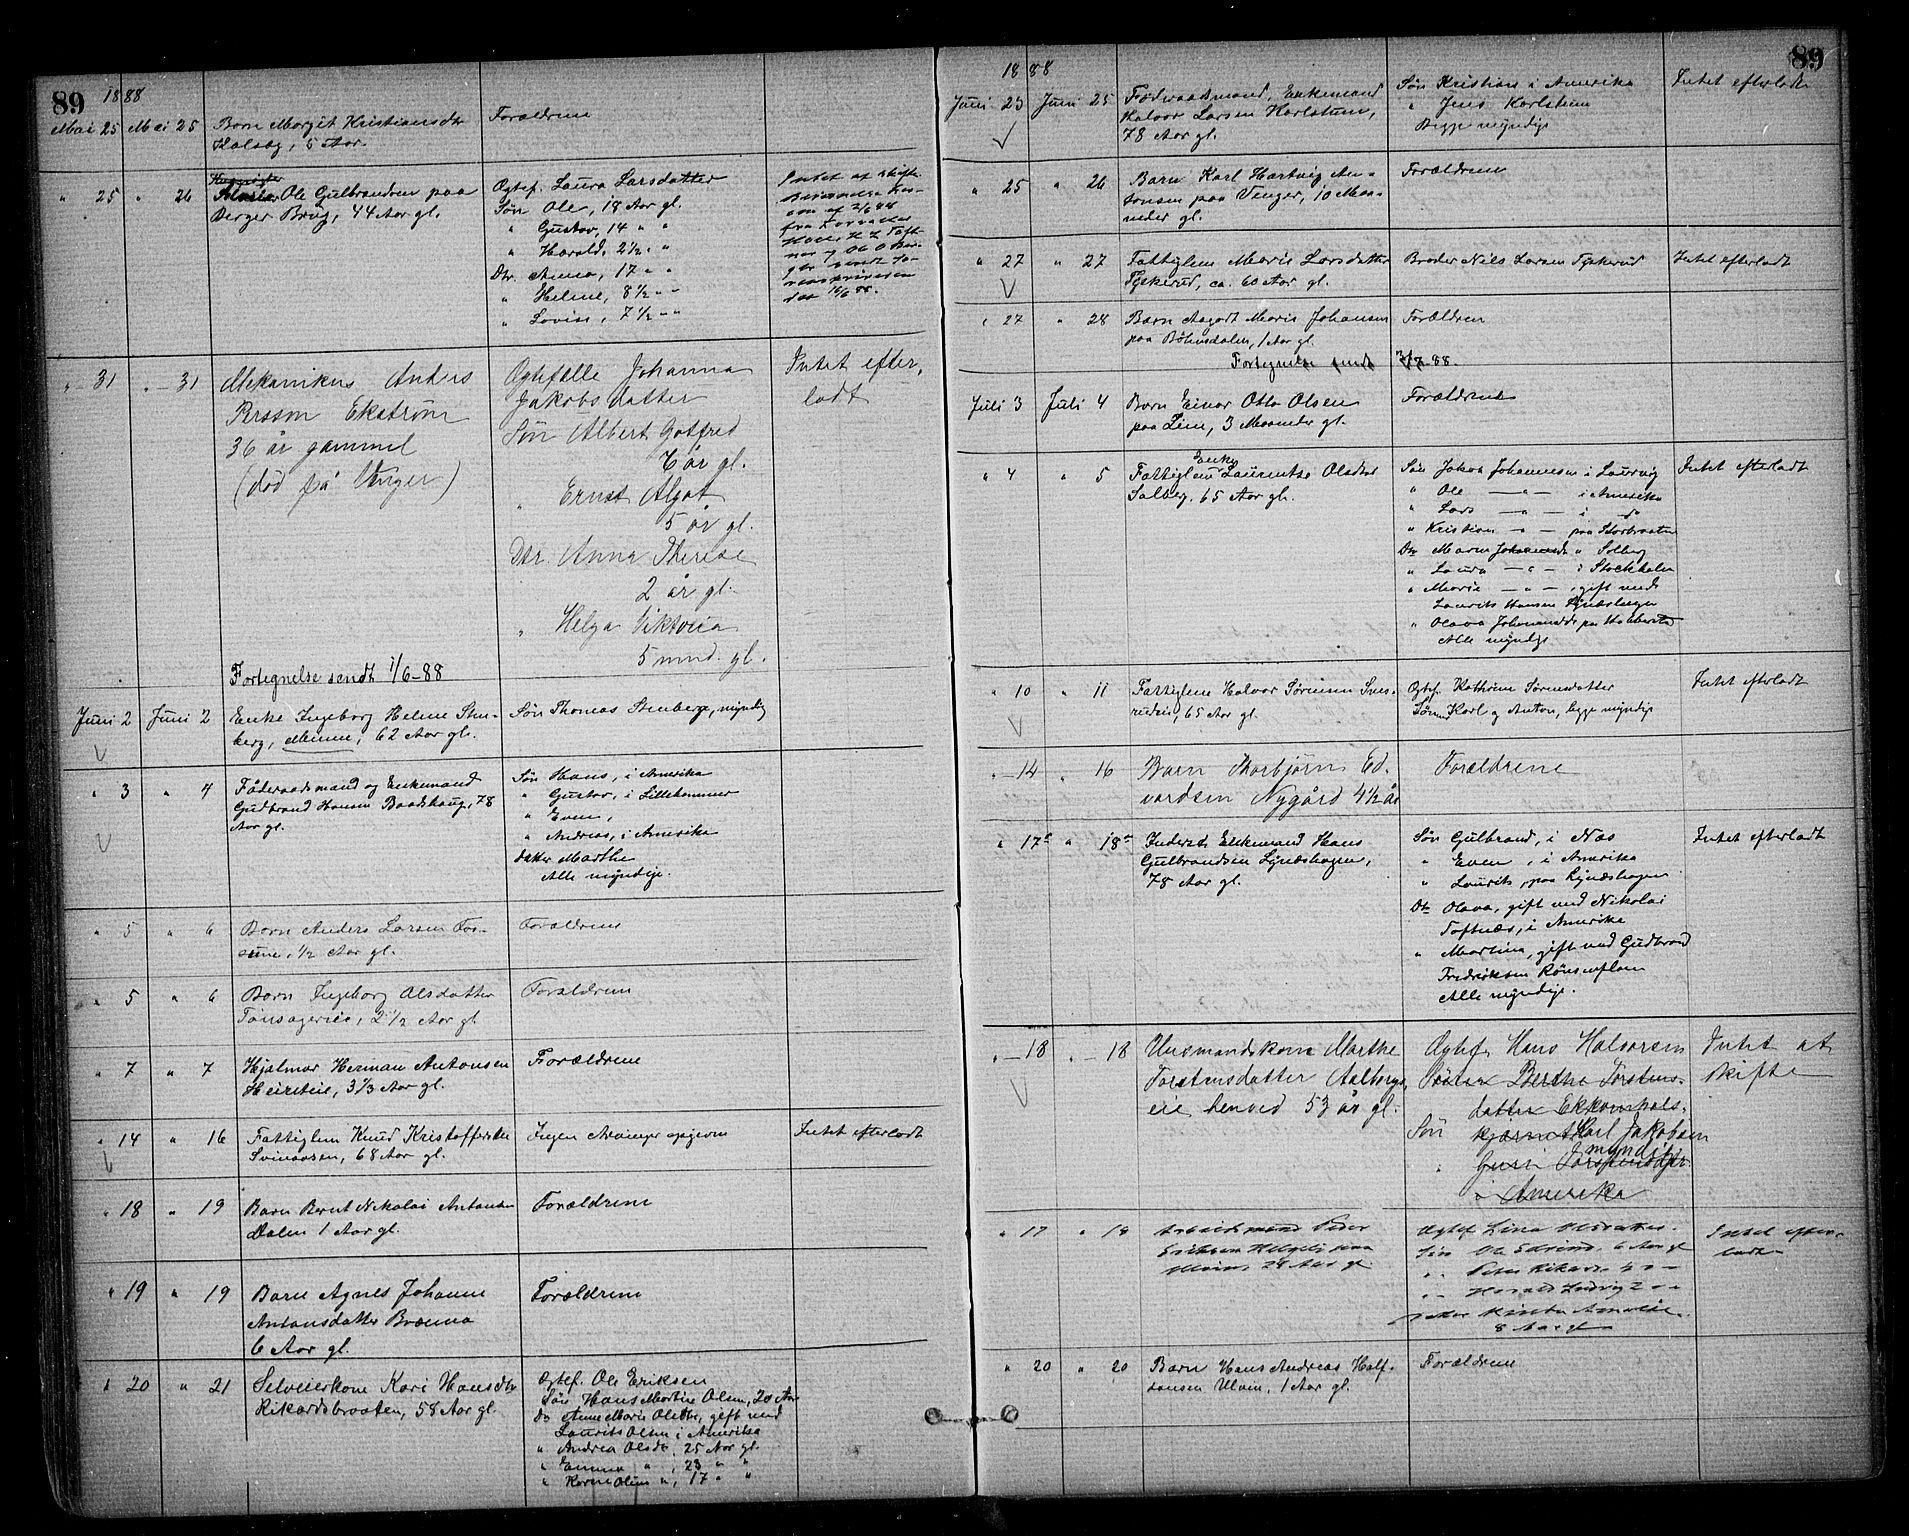 89 1888
Mai 25 Mai 25 Barn Margit Kristiansdtr Forældrene
5 Aar
" 25 " 26 Ole Gulbrandsen paa Ægtef. Laura Larsdatter Intet at skifte
Berger Brug, 44 Aar gl. Søn Ole, 18 Aar gl.
" Gustav, 14 " "
" Harald, 2½ " "
Dtr. Anna, 17 " "
" Helene, 8½ " "
" Lovise, 7½ " "
" 31 " 31 Mekanikus Anders Ægtefælle Johanna Intet efter-
Persson Ekstrøm Jakobsdatter ladt
36 år gammel Søn Albert Gotfred
6 år gl.
(død på Unger) " Ernst Algot
5 år gl.
Dtr. Anna Therese
2 år gl.
" Helga Viktoria
5 mnd. gl.
Fortegnelse sendt 1/6-88
Juni 2 Juni 2 Enke Ingeborg Helene Sten- Søn Thomas Stenberg, myndig
berg, 62 Aar gl.
" 3 " 4 Føderaadsmand og Enkemand Søn Hans, i Amerika
Gudbrand Hansen Baadshaug, 78 " Gustav, i Lillehammer
Aar gl. " Even,
" Andreas, i Amerika
Datter Marthe
Alle myndige.
" 5 " 6 Barn Anders Larsen Fos- Forældrene
sum, ½ Aar gl.
" 5 " 6 Barn Ingeborg Olsdatter Forældrene
2½ Aar gl.
" 7 " 7 Hjalmar Herman Antonsen Forældrene
3⅓ Aar gl.
" 14 " 16 Fattiglem Knud Kristoffersen Ingen Arvinger opgivne Intet efterladt
Svinaasen, 68 Aar gl.
" 18 " 19 Barn Bernt Nikolai Antonsen Forældrene
Dalen 1 Aar gl.
" 19 " 19 Barn Agnes Johanne Forældrene
Antonsdatter Brænna
6 Aar gl.
" 20 " 21 Selveierkone Kari Hansdtr Ægtef. Ole Eriksen
Rikardsbraaten, 58 Aar gl. Søn Hans Martin Olsen, 20 Aar
Do Anne Marie Olsdtr, gift med
Laurits Olsen i Amerika
" Andrea Olsdtr. 25 Aar gl.
" Emma " , 23 " "
" Karen Oline ", 17 " "
1888 89
Juni 23 Juni 25 Føderaadsmand, Enkemand Søn Kristian i Amerika Intet efterladt
Halvor Larsen Karlstum, " Jens Karlstum
78 Aar gl. Begge myndige
" 25 " 26 Barn Karl Hartvig An- Forældrene
tonsen paa Venger, 10 Maa-
neder gl.
" 27 " 27 Fattiglem Marie Larsdatter Broder Nils Larsen Tyskerud Intet efterladt
Tyskerud, ca. 60 Aar gl.
" 27 " 28 Barn Aagodt Marie Johansen Forældrene
paa Bøhnsdalen, 1 Aar gl.
Fortegnelse sendt 2/7 88.
Juli 3 Juli 4 Barn Einar Otto Olsen Forældrene
paa Lim, 3 Maaneder gl.
Enke
" 4 " 5 Fattiglem Laurentse Olsdtr Søn Johan Johannesen i Laurvig Intet efterladt
Solberg, 65 Aar gl. " Ole — " — i Amerika
" Lars — " — i do
" Kristian — " — paa Storbraaten
Dtr Maren Johannesdtr " Solberg
" Laura — " — i Stockholm
" Marie — " — , gift med
Laurits Hansen Lyndshagen
" Olava Johannesdtr paa
Alle myndige
" 10 " 11 Fattiglem Halvor Sørensen Snes- Ægtef. Kathrine Sørensdatter Intet efterladt
ruden, 65 Aar gl. Sønner Karl og Anton, begge myndige
" 14 " 16 Barn Thorbjørn Ed- Forældrene
vardsen Nygård 4½ år
" 17 " 18 Inderst Enkemand Hans Søn Gulbrand, i Næs Intet efterladt
Gulbrandsen Lyndshagen, " Even, i Amerika
78 Aar gl. " Laurits, paa Lyndshagen
Dtr Olava, gift med Nikolai
Toftnæs, i Amerika
" Martina, gift med Gudbrand
Fredriksen Rønsenplom
Alle myndige.
" 18 " 18 Husmandskone Marthe Ægtef. Hans Halvorsen Intet at
Torstensdatter Aalborgs- Søster Berthe Torstens- skifte
eie henved 53 år gl. datter
Søn Karl Jakobsen
myndig
" Guri Torstensdtr
i Amerika
" 17 " 19 Arbeidsmand Peder Ægtef. Lina Olsdatter. Intet efter-
28 Aar gl. Søn Ole Edvind 6 Aar gl ladt
" Peter Rikard 4 " —
" Harald Ludvig 2 " "
Amalie
8 Aar gl
" 20 " 20 Barn Hans Andreas Half- Forældrene
dansen Ulvin, 1 Aar gl.